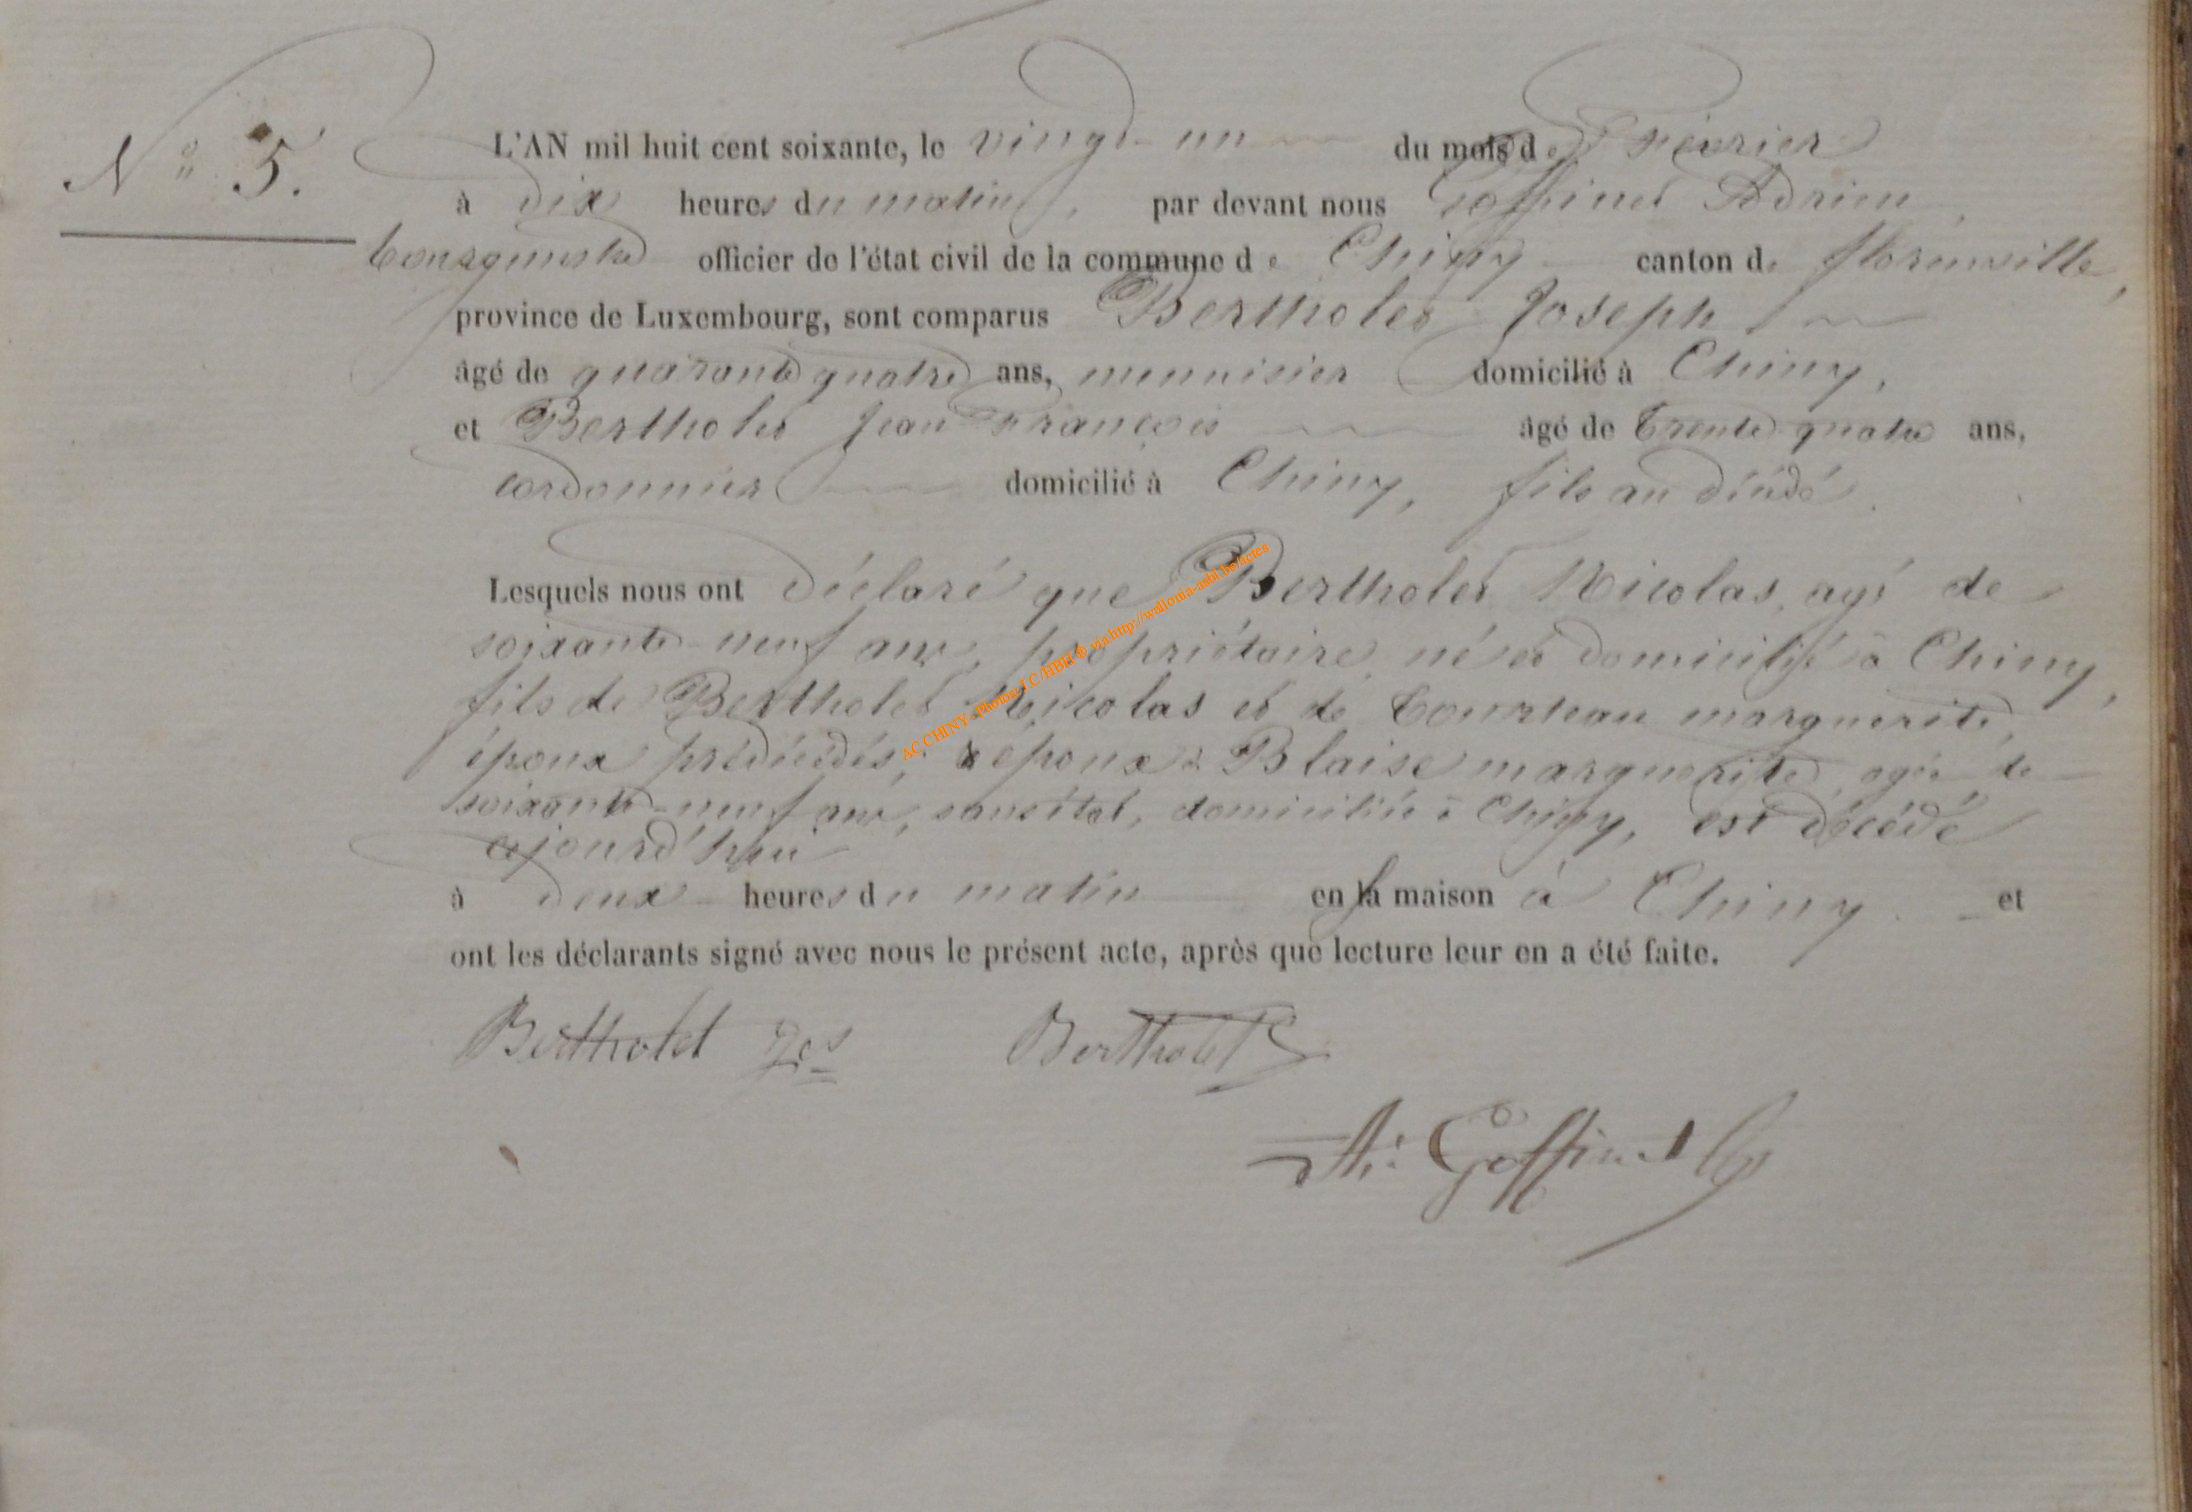 N° 5.
L'AN mil huit cent soixante, le vingt-un du mois de Février
à dix heures du matin, par devant nous Goffinet Adrien,
bourgmestre officier de l'état civil de la commune de Chiny canton de florenville,
province de Luxembourg, sont comparus Bertholet Joseph
âgé de quarante quatre ans, menuisier domicilié à Chiny,
et Bertholet Jean François âgé de trente quatre ans,
cordonnier domicilié à Chiny, fils au décédé.
Lesquels nous ont déclaré que Bertholet Nicolas, agé de
soixante-neuf ans, propriétaire, né et domicilié à Chiny,
fils de Bertholet Nicolas et de marguerite,
époux prédécédés, époux de Blaise marguerite, agée de
soixante-neuf ans, sans état, domiciliée à Chiny, est décédé
ajourd'hui
à deux heures du matin en sa maison à Chiny. et
ont les déclarants signé avec nous le présent acte, après que lecture leur en a été faite.
Bertholet Bertholet
A. Goffinet
AC CHINY - Photos J.C/HBH © via http://wallonia-asbl.be/actes